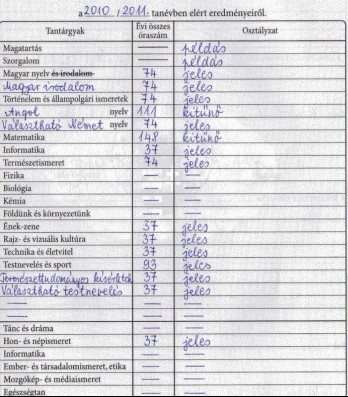 a 2010 / 2011. tanévben elért eredményeiről.
Tantárgyak Évi összes óraszám Osztályzat
Magatartás — példás
Szorgalom — példás
Magyar nyelv és irodalom 74 jeles
Magyar irodalom 74 jeles
Történelem és állampolgári ismeretek 74 jeles
Angol nyelv 111 kitűnő
Választható Német nyelv 74 jeles
Matematika 148 kitűnő
Informatika 37 jeles
Természetismeret 74 jeles
Fizika — —
Biológia — —
Kémia — —
Földünk és környezetünk — —
Ének-zene 37 jeles
Rajz- és vizuális kultúra 37 jeles
Technika és életvitel 37 jeles
Testnevelés és sport 93 jeles
Természettudományos kísérletek 37 jeles
Választható testnevelés 37 jeles
— — —
— — —
Tánc és dráma — —
Hon- és népismeret 37 jeles
Informatika — —
Ember- és társadalomismeret, etika — —
Mozgókép- és médiaismeret — —
Egészségtan — —